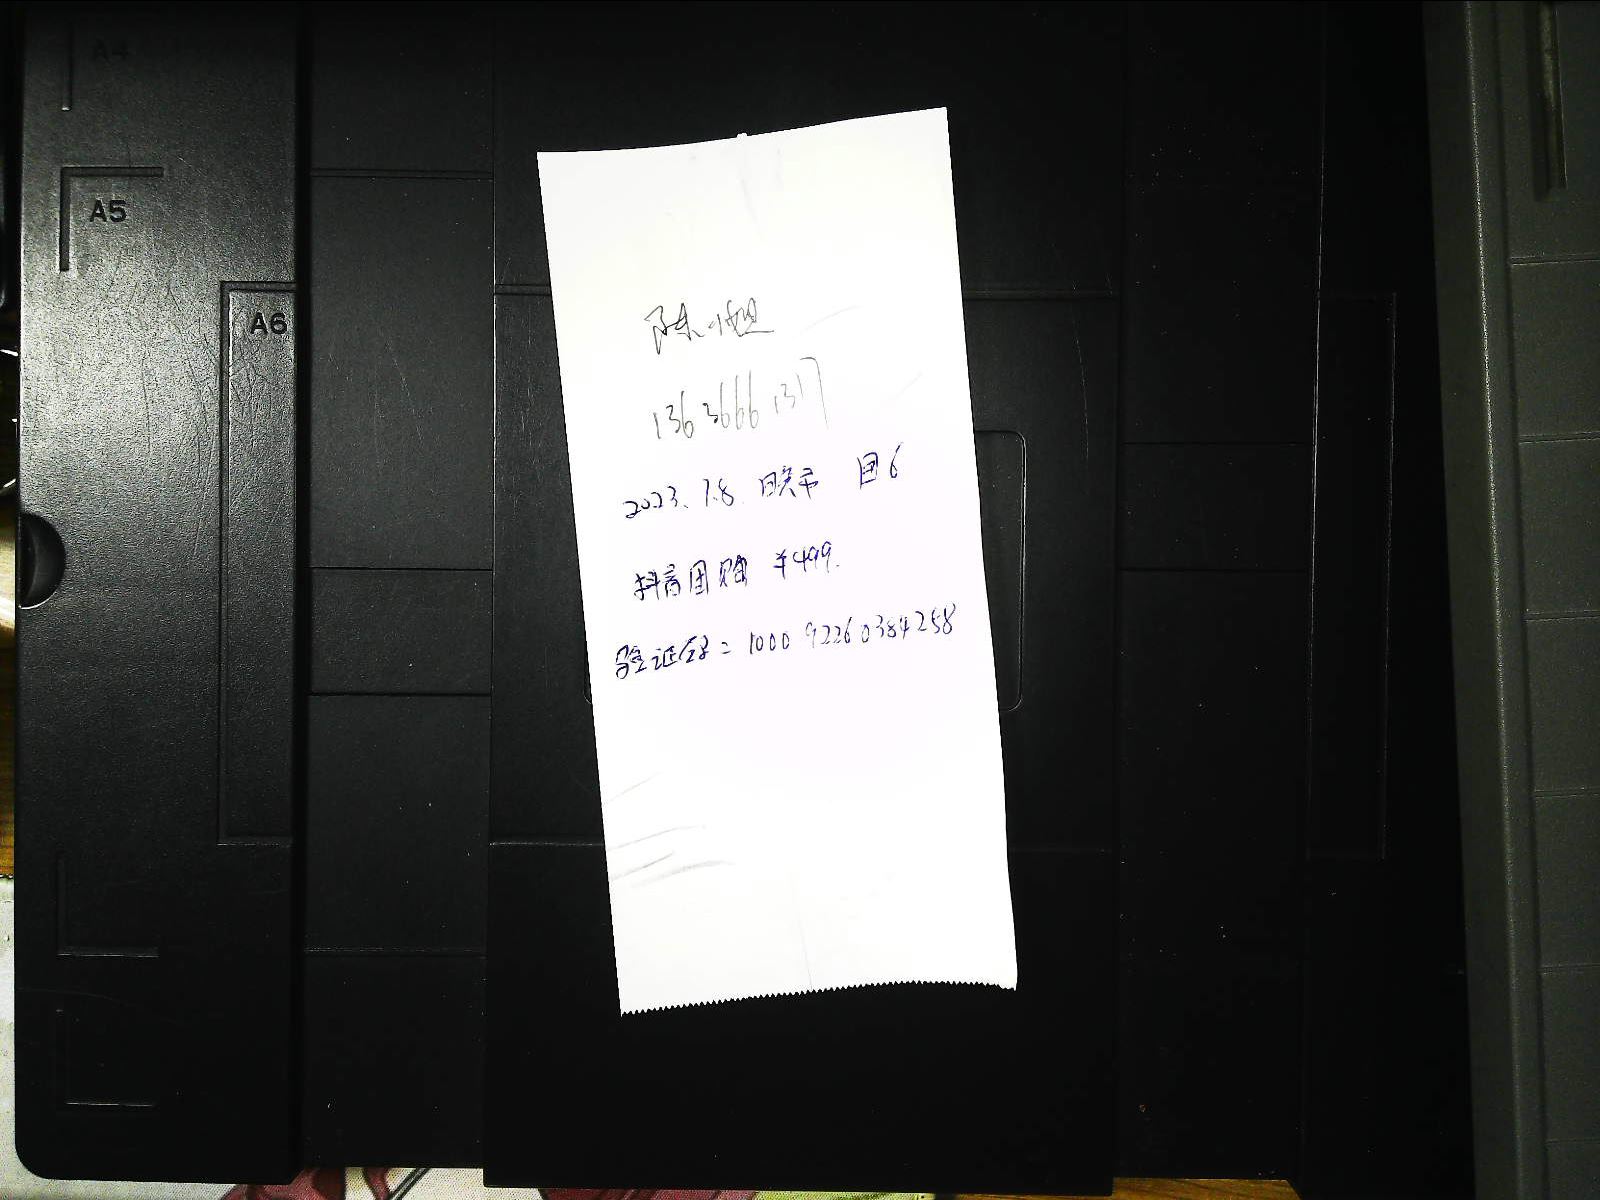 A4
A5
A6
陈小姐
13636661317
2023.7.8. 日 团6
抖音团购 ¥499.
验证码：1000 92260384258